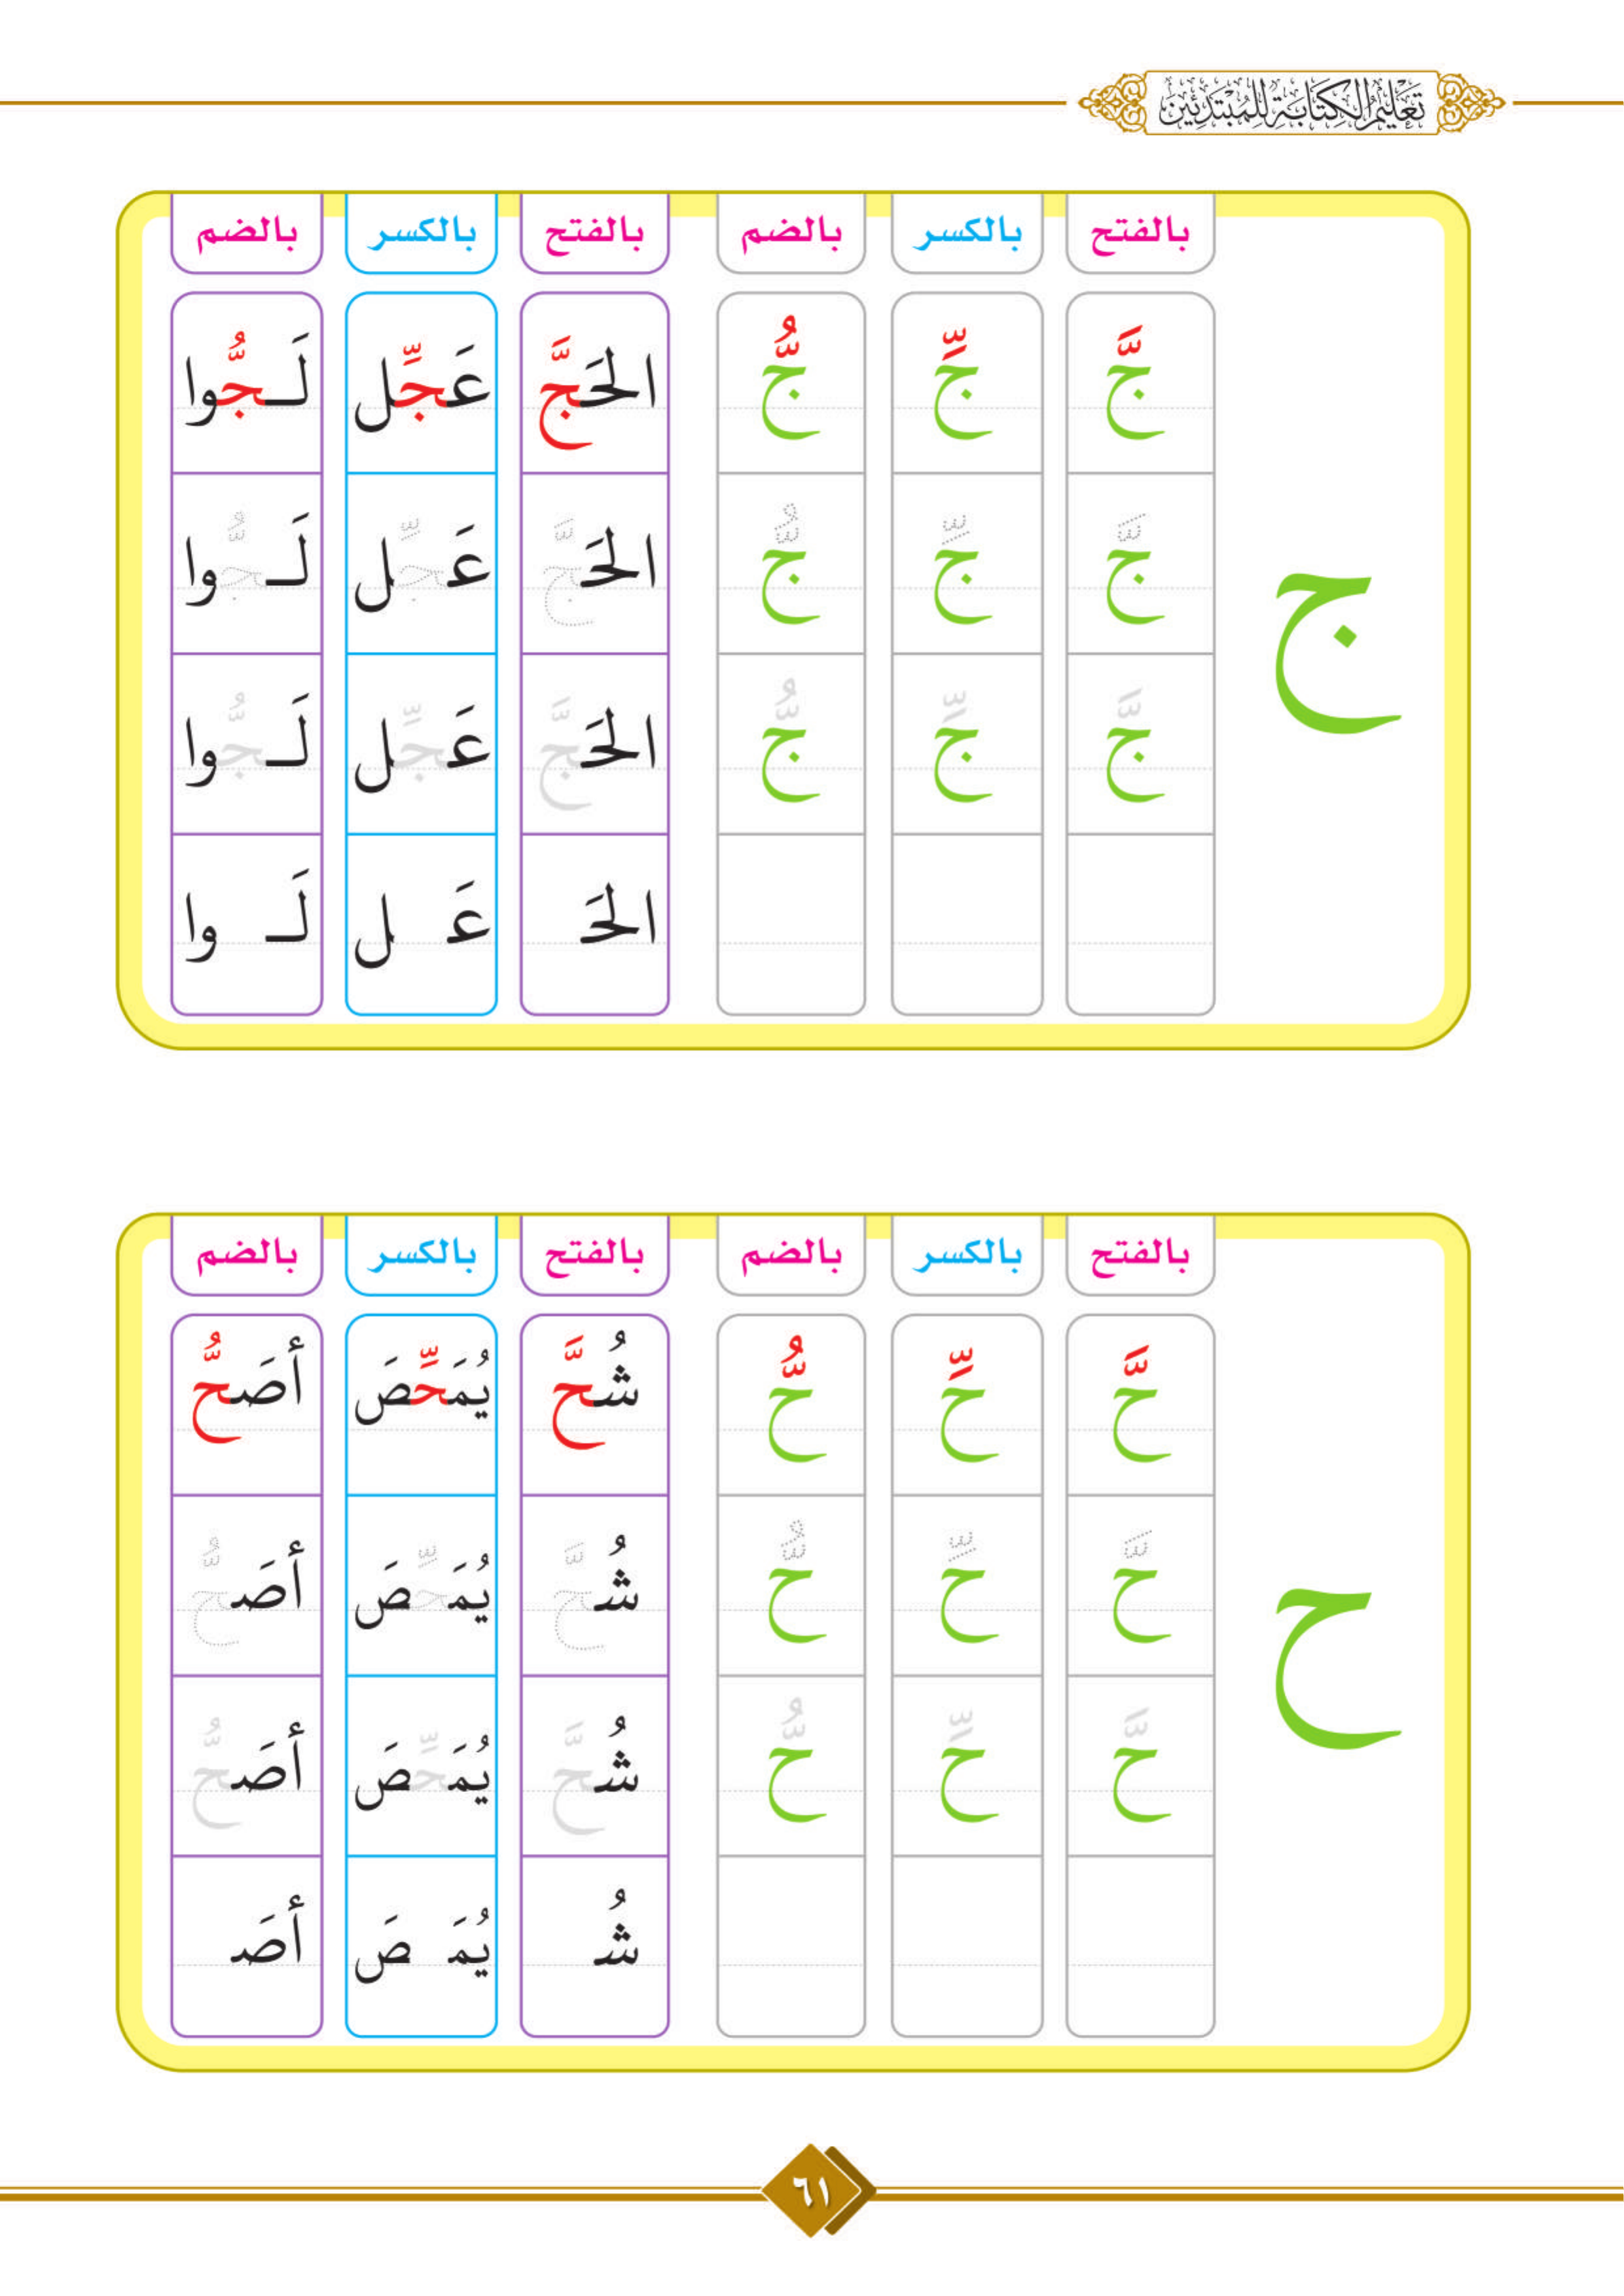 تَعْلِيمُ الْكِتَابَةِ لِلْمُبْتَدِئِينَ
بالفتح بالكسر بالضم بالفتح بالكسر بالضم
ج
جَّ جِّ جُّ الحَجَّ عَجِّل لَـجُّوا
جَّ جِّ جُّ الحَجَّ عَجِّل لَـجُّوا
جَّ جِّ جُّ الحَجَّ عَجِّل لَـجُّوا
الحَـ عَـ ـل لَـ وا
بالفتح بالكسر بالضم بالفتح بالكسر بالضم
ح
حَّ حِّ حُّ شُحَّ يُمَحِّصَ أَصَحُّ
حَّ حِّ حُّ شُحَّ يُمَحِّصَ أَصَحُّ
حَّ حِّ حُّ شُحَّ يُمَحِّصَ أَصَحُّ
شُـ يُمَـ ـصَ أَصَـ
٦١